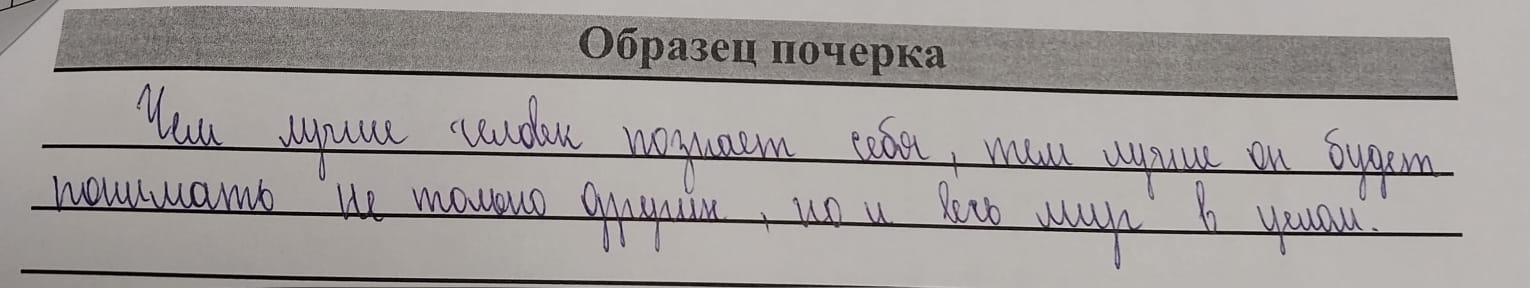 Образец почерка
Чем лучше человек познает себя, тем лучше он будет
понимать не только других, но и весь мир в целом.